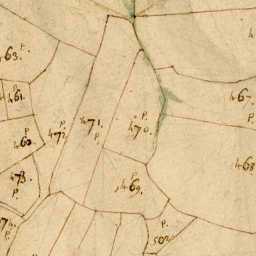 P.
463.
461.
P.
460
P.
472.
471.
P.
P.
470.
467.
P.
468
473.
P.
P.
469.
P.
502
P.